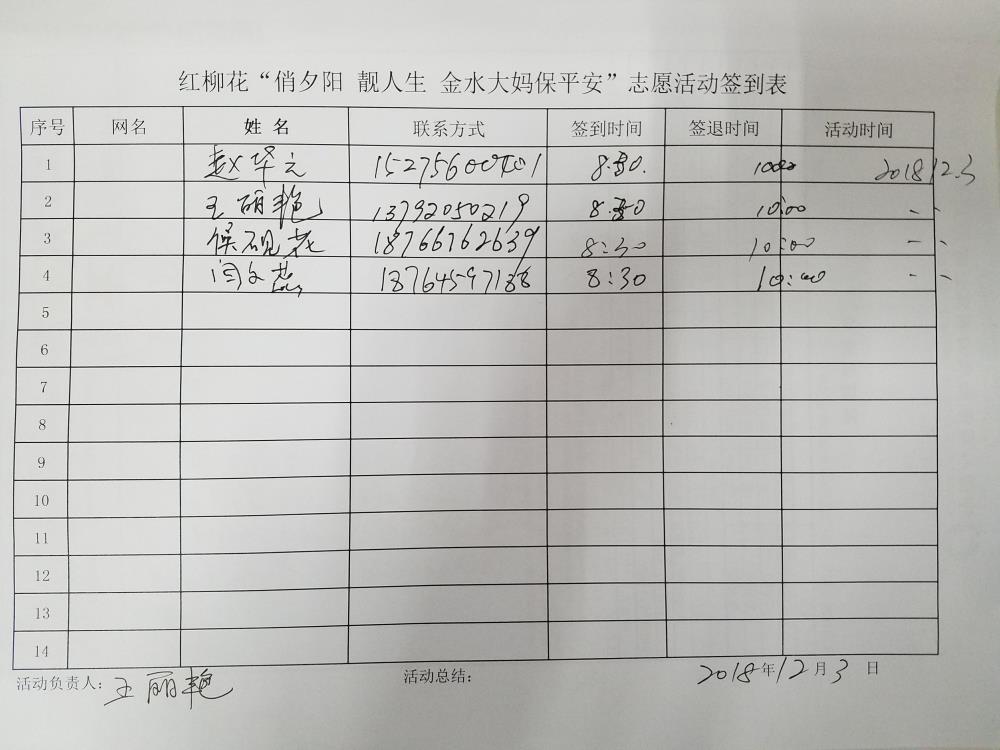 红柳花“俏夕阳 靓人生 金水大妈保平安”志愿活动签到表
序号 网名 姓名 联系方式 签到时间 签退时间 活动时间
1 赵华云 15275600401 8:30. 1000 2018 12.3
2 王丽艳 13792050219 8:30 10:00
3 侯砚花 18766762639 8:30 10:00
4 闫文 18764597188 8:30 10:00
5
6
7
8
9
10
11
12
13
14
活动负责人：王丽艳 活动总结： 2018年12月3日